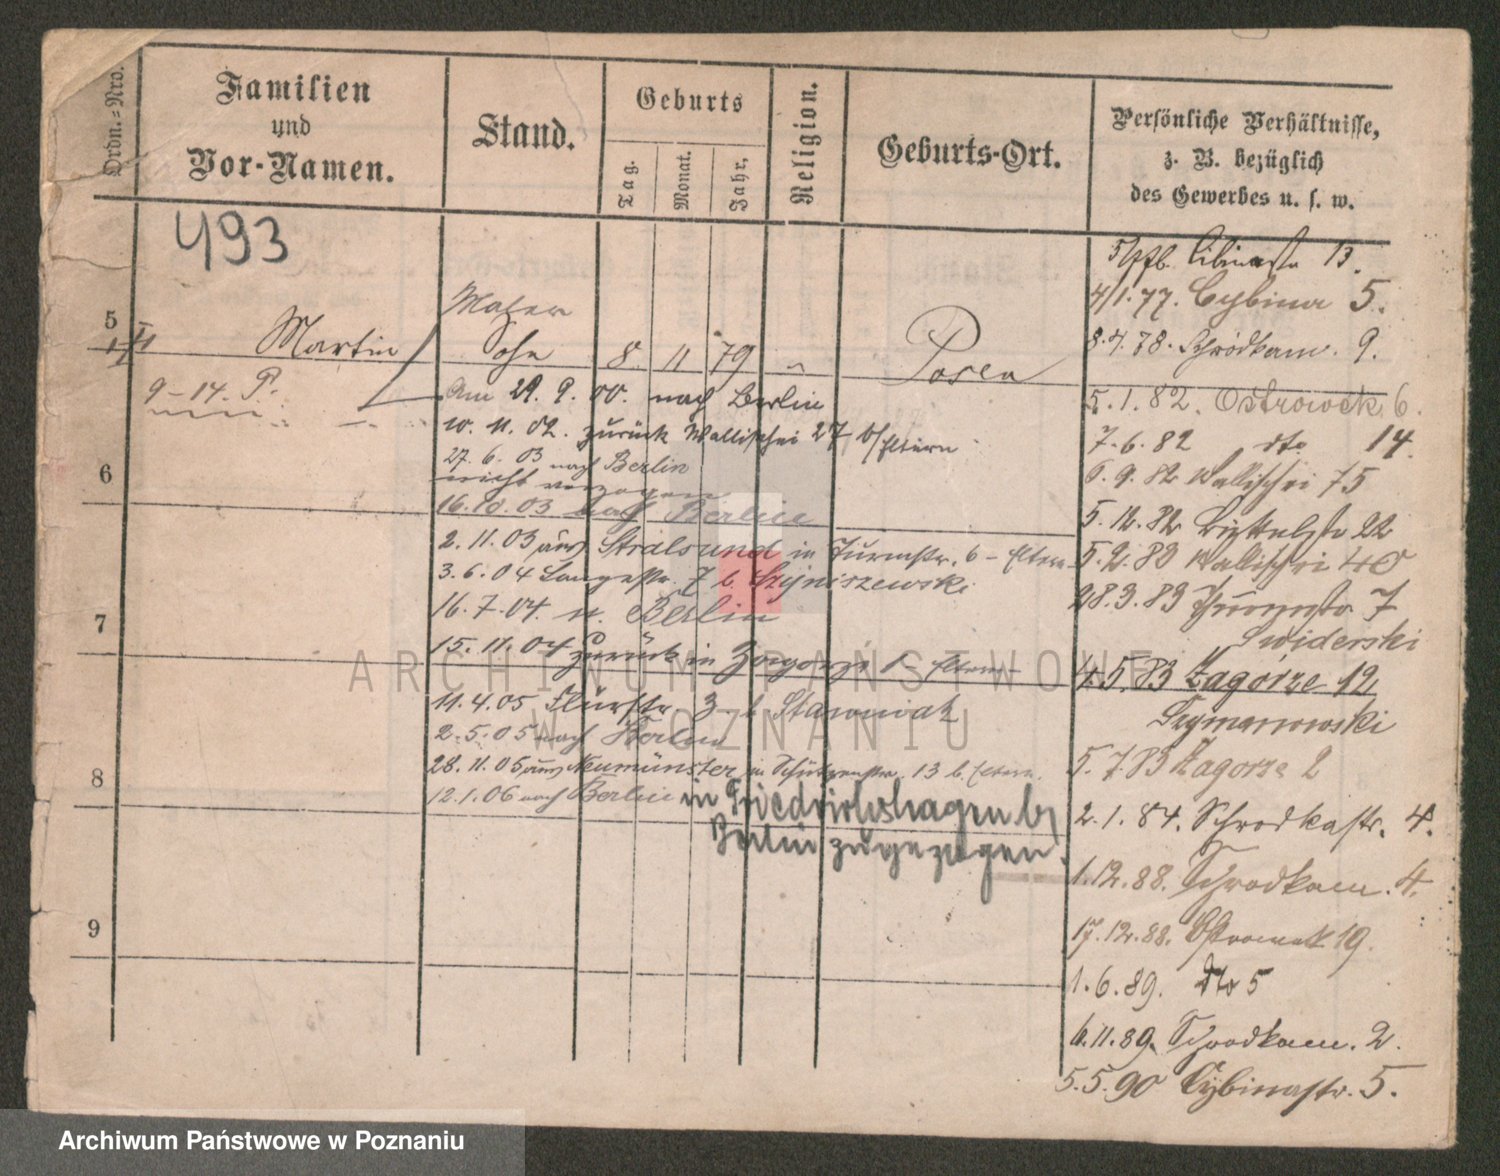 Ordn.-Nro.
Familien
und
Vor-Namen.
Stand.
Geburts
Tag.
Monat.
Jahr.
Religion.
Geburts-Ort.
Persönliche Verhältnisse,
z. B. bezüglich
des Gewerbes u. s. w.
493
13.
4/1.77. Cybina 5.
8.4.78. Schrodkam. 9.
5
Martin
Maler
Sohn
8 11 79
Posen
9-14. P.
Am 29. 9. 00. nach Berlin
10. 11. 02. zurück Wallischei 27 b/Eltern
27. 6. 03 nach Berlin
nicht verzogen
16.10.03 nach Berlin
2. 11. 03 aus Stralsund in Turmstr. 6 - Eltern
3. 6. 04 Langestr. 7 b. Szyniszewski
16. 7. 04. n. Berlin
15. 11. 04 zurück in Zagorze 1 - Eltern -
11. 4. 05 Flurstr. 3. b Starowiak
2. 5. 05 nach Berlin
28. 11. 05 aus Neumünster in Schützenstr. 13 b. Eltern.
12. 1. 06 nach Berlin in Friedrichshagen b/
Berlin zugezogen.
6
7
8
9
5. 1. 82. Ostrowek 6.
7. 6. 82 dto 14.
6. 9. 82 Wallischei 75
5. 12. 82 22
5. 2. 83 Wallischei 40
28. 3. 83 Thurmstr. 7
Swiderski
4. 5. 83 Zagórze 12
Szymanowski
5. 7. 83 Zagorze 2
2. 1. 84. Schrodkastr. 4.
1. 12. 88. Schrodkam. 4.
17. 12. 88. Ostrowek 19.
1. 6. 89. dto 5
6. 11. 89. Schrodkam. 2.
5. 5. 90 Cybinastr. 5.
ARCHIWUM PAŃSTWOWE
W POZNANIU
Archiwum Państwowe w Poznaniu